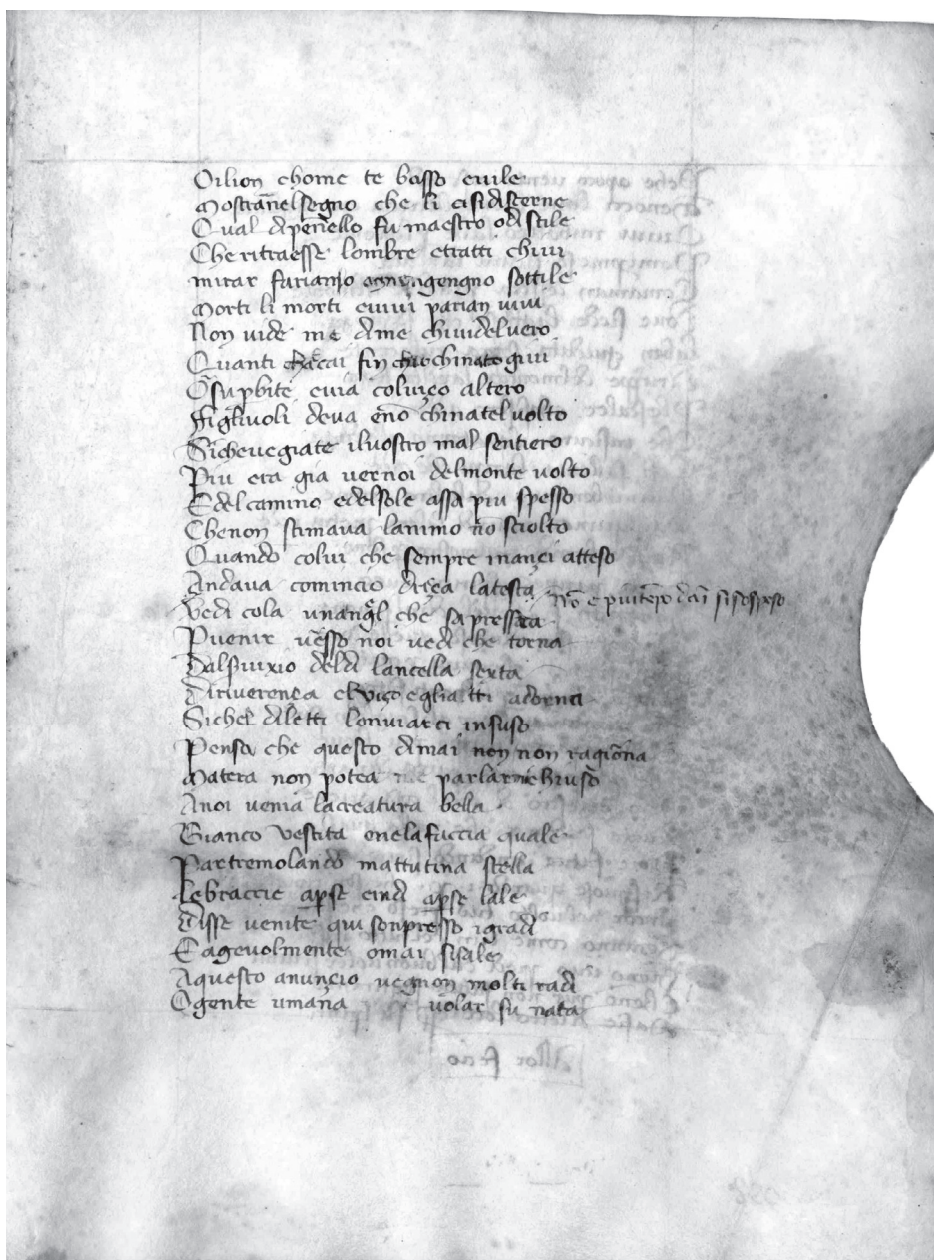 Oilion chome te basso euile
Mostrauelsegno che li cisidiscerne
Qual dipenello fu maestro odi stile
Che ritraesse lombre etratti chiui
mirar farianjo ogne ngengno sottile
Morti li morti euiui parian uiui
Non uide me dime chiuidelvero
Quanti chalcai fin che chinato giui
Osupbite euia coluiço altero
Figliuoli deua eno chinatel volto
Siche uegiate iluostro mal sentiero
Piu era gia uernoi delmonte uolto
Edelcamino edelsole assa piu spesso
Chenon stimaua lanimo no sciolto
Quando colui che sempre inançi atteso
Andaua comincio driça latesta
No e piu tepo dai si sospeso
Vedi cola unangl che sapressta
Puenir uesso noi uedi che torna
Dalseruixio deldi lancella sexta
Diriuerença eluiço egliatti adorna
Sichel diletti loinuiarci insuso
Pensa che questo di mai non non ragiona
Matera non potea parlarmi Bruso
Anoi uenia lacreatura bella
Bianco Vestita enelafaccia quale
Partremolando mattutina stella
Lebraccie apse eindi apse lale
Disse uenite qui sonpresso igradi
Eageuolmente omai sisale
Aquesto anuncio uegnon molti radi
Ogente umana volar su nata